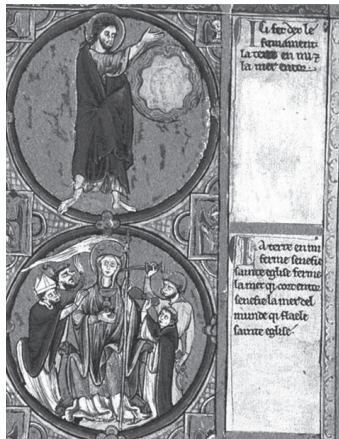 Ci fet dex le
firmament
la terre en mi ⁊
la mer entor
La terre en mi
ferme senefie
sainte eglise ferme
la mer qi cort entor
senefie la mer del
munde qi flaele
sainte eglise